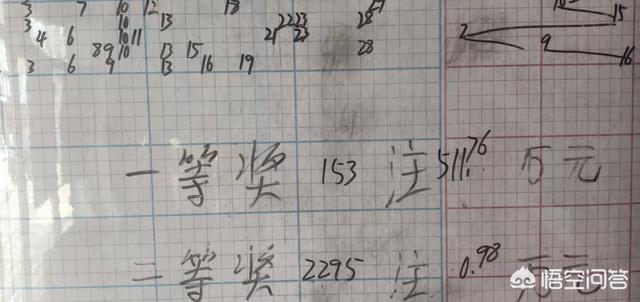 3 7 10 12 18 27
3 10 13 22 23 28 10 15
4 6 10 11 21 23 2
8 9 10 13 15 28 9
3 6 9 13 16 19 16
一等奖 153 注 511.76 万元
二等奖 2295 注 0.98 万元
悟空问答